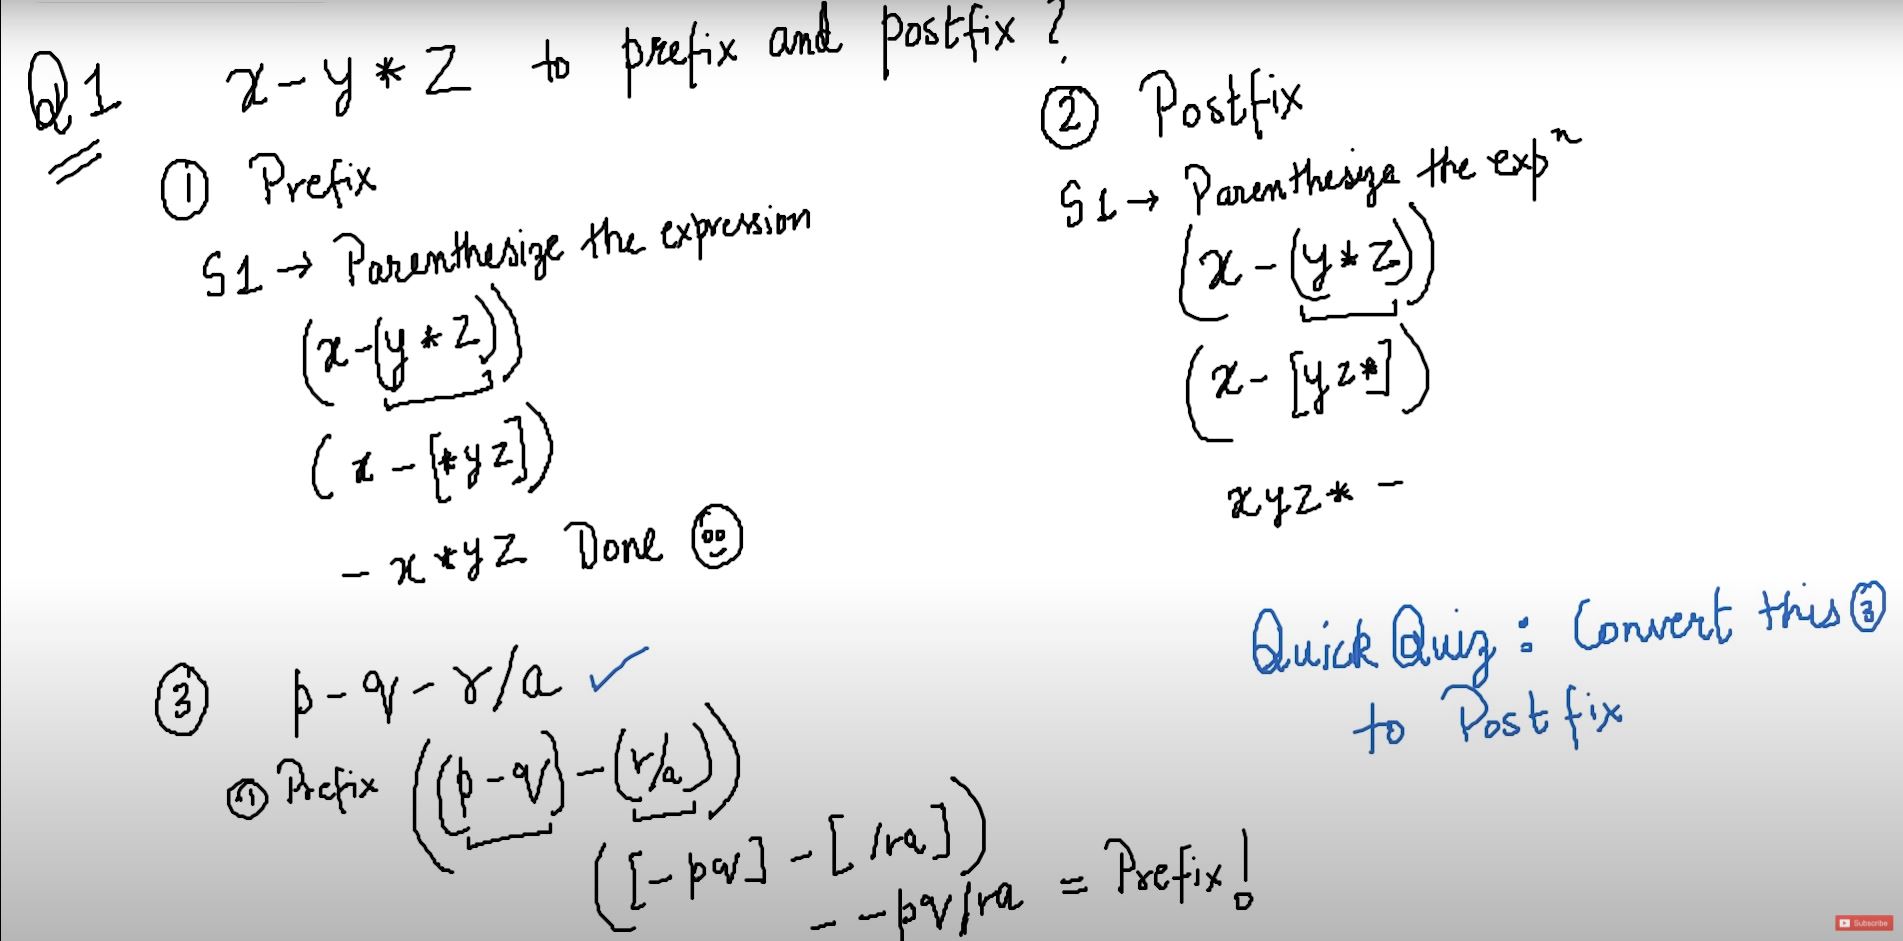 Q1 x-y*z to prefix and postfix?
① Prefix
S1 → Parenthesize the expression
(x-(y*z))
(x-[*yz])
-x*yz Done
② Postfix
S1 → Parenthesize the expⁿ
(x-(y*z))
(x-[yz*])
xyz*-
③ p-q-r/a ✓
① Prefix ((p-q)-(r/a))
([-pq]-[/ra])
--pq/ra = Prefix!
Quick Quiz: Convert this ③
to Postfix
Subscribe